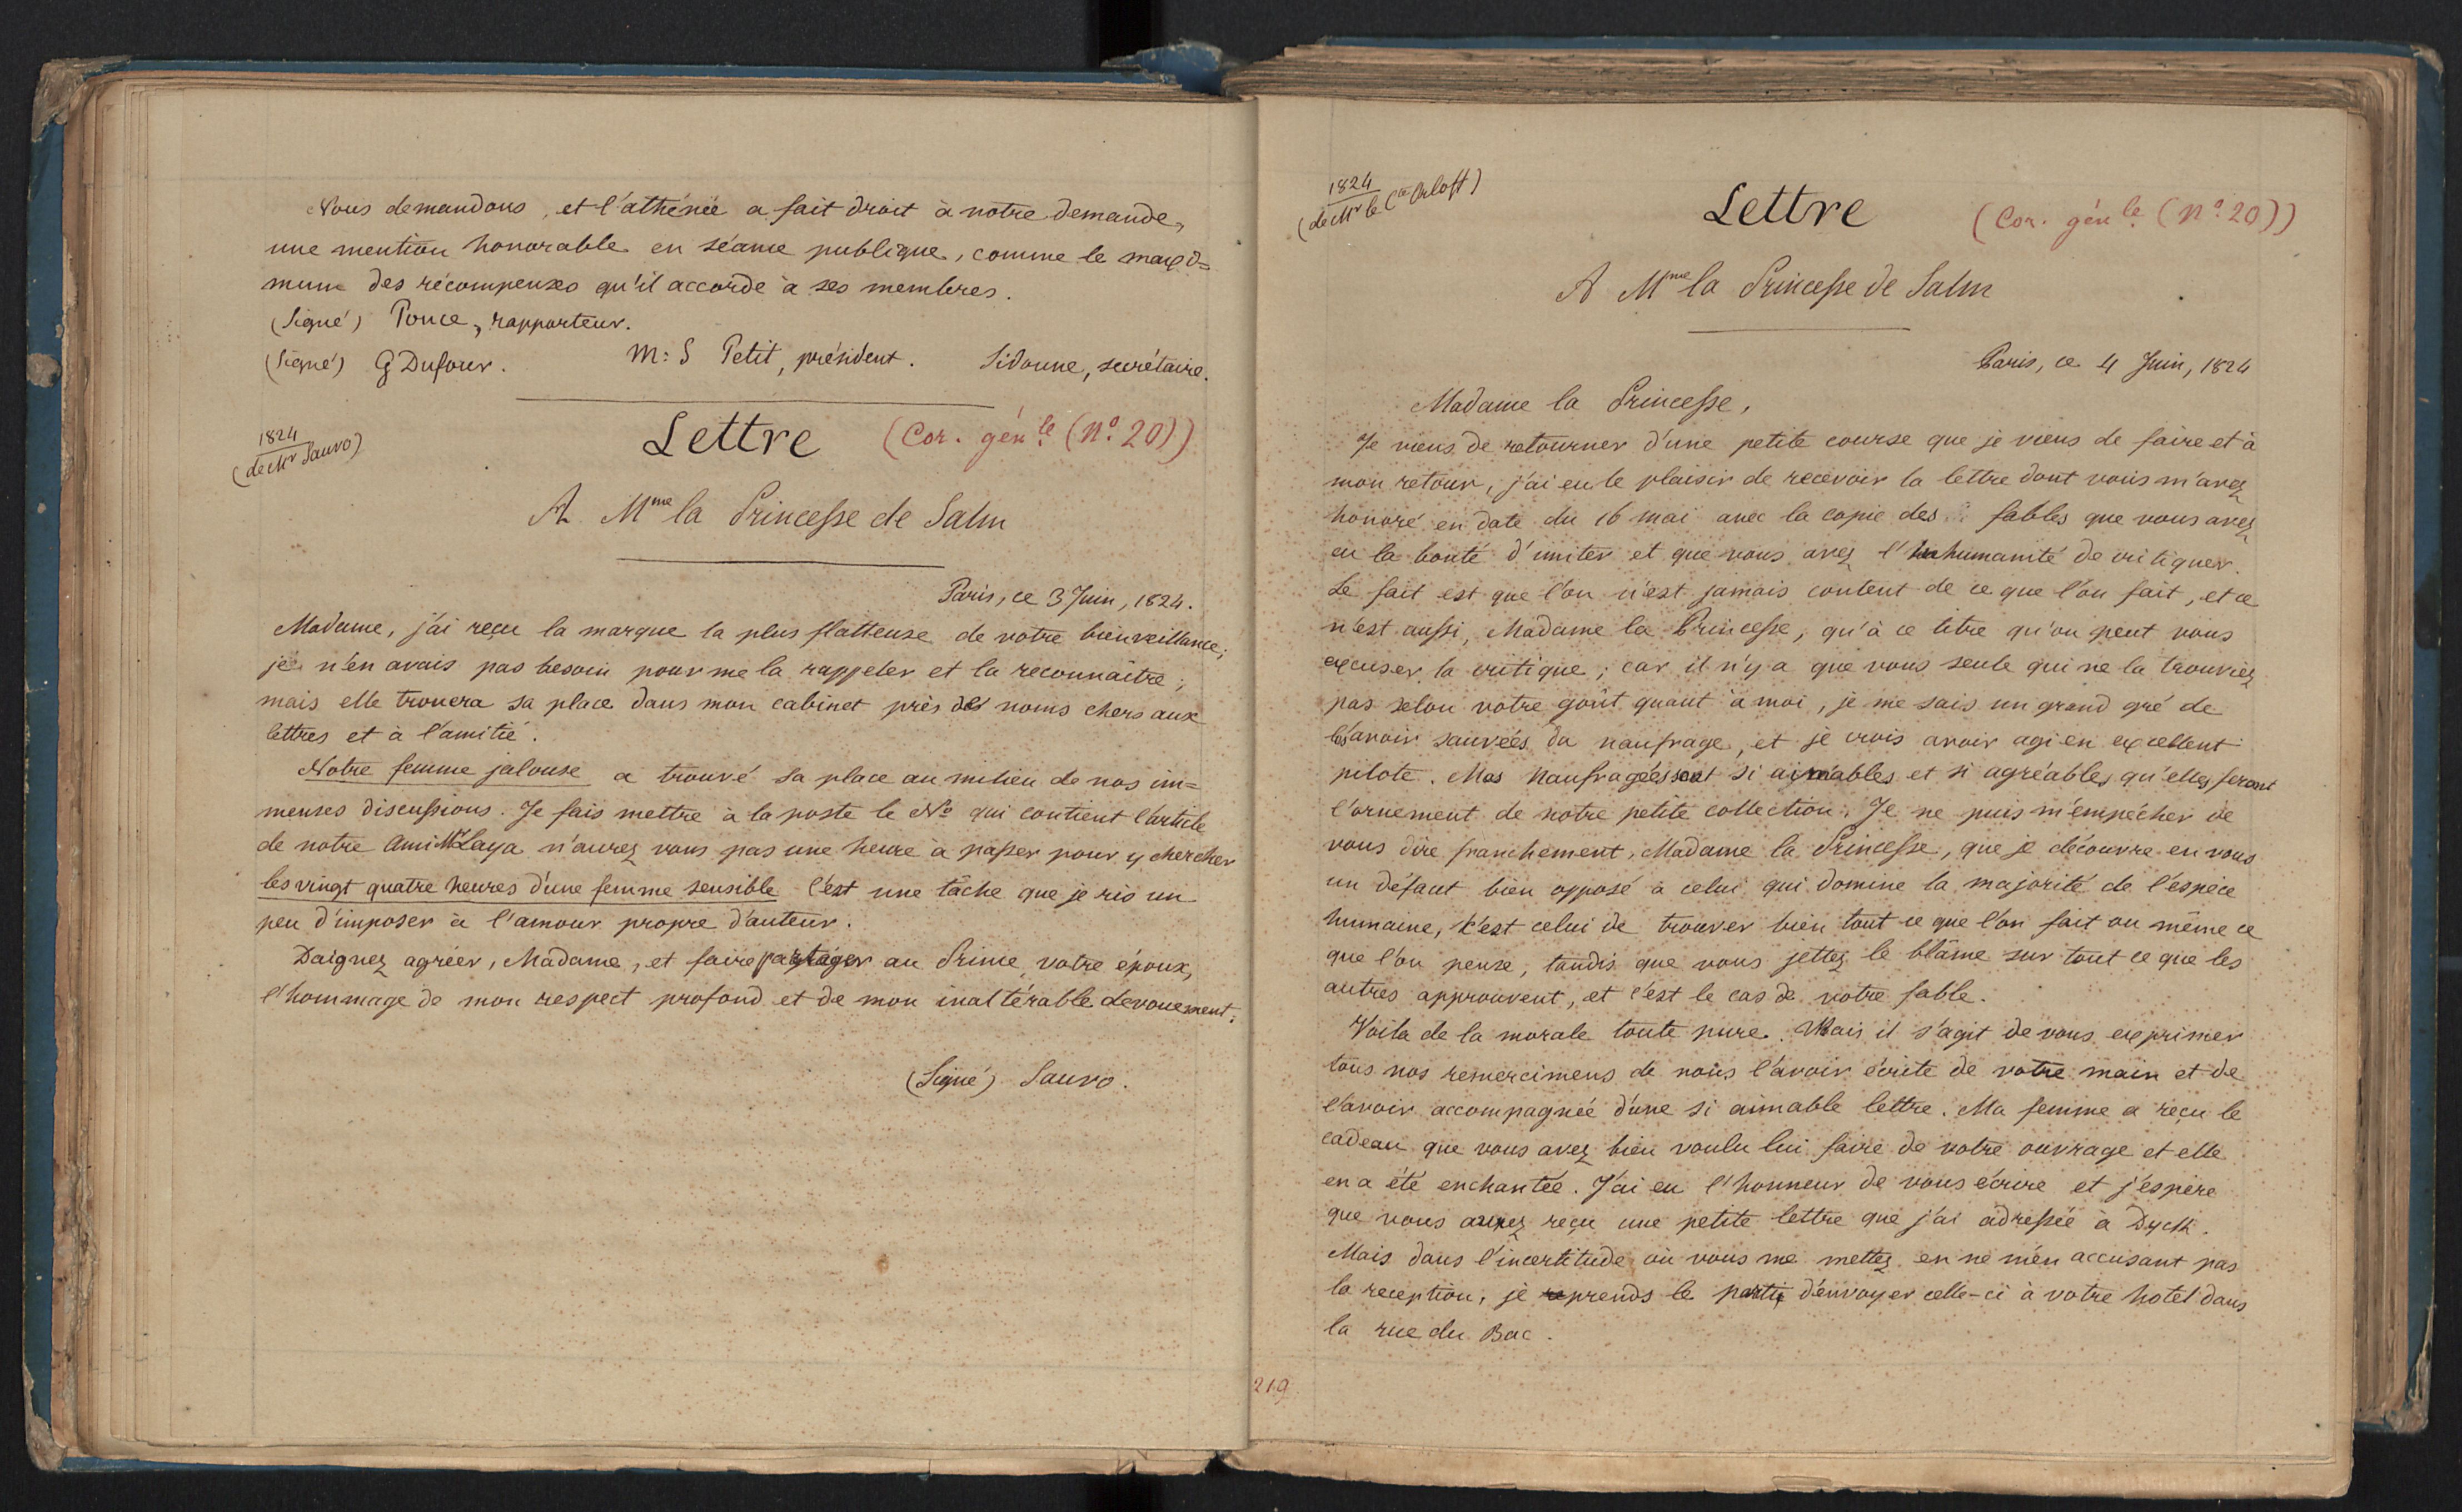 Nous demandons, et l'athénée a fait droit à notre demande,
une mention honorable en séance publique, comme le maxi=
mum des récompenses qu'il accorde à ses membres.
(Signé) Ponce, rapporteur.
(Signé) G Dufour. M: S Petit, président. Sidonne, secrétaire.
1824
(de Mr Sauvo)
Lettre (Cor. génle. (No. 20))
A Mme la Princesse de Salm
Paris, ce 3 Juin, 1824.
Madame, j'ai reçu la marque la plus flatteuse de votre bienveillance;
je n'en avais pas besoin pour me la rappeler et la reconnaître;
mais elle trouvera sa place dans mon cabinet près des noms chers aux
lettres et à l'amitié.
Notre femme jalouse a trouvé sa place au milieu de nos im=
menses discussions. Je fais mettre à la poste le No qui contient l'article
de notre ami Mr Laya n'aurez vous pas une heure à passer pour y chercher
les vingt quatre heures d'une femme sensible c'est une tâche que je ris un
peu d'imposer à l'amour propre d'auteur.
Daignez agréer, Madame, et faire partager au Prince, votre époux,
l'hommage de mon respect profond et de mon inaltérable devouement.
(Signé) Sauvo.
1824
(de Mr le Cte Orloff)
Lettre (Cor. génle. (No. 20))
A Mme la Princesse de Salm
Paris, ce 4 Juin, 1824
Madame la Princesse,
Je viens de retourner d'une petite course que je viens de faire et à
mon retour, j'ai eu le plaisir de recevoir la lettre dont vous m'avez
honoré en date du 16 mai avec la copie des fables que vous avez
eu la bonté d'imiter et que vous avez l'inhumanité de critiquer.
Le fait est que l'on n'est jamais content de ce que l'on fait, et ce
n'est aussi, Madame la Princesse, qu'à ce titre qu'on peut vous
excuser la critique; car il n'y a que vous seule qui ne la trouviez
pas selon votre goût quant à moi, je me sais un grand gré de
les avoir sauvées du naufrage, et je crois avoir agi en excellent
pilote. Mes naufragées sont si aimables et si agréables qu'elles feront
l'ornement de notre petite collection. Je ne puis m'empêcher de
vous dire franchement, Madame la Princesse, que je découvre en vous
un défaut bien opposé à celui qui domine la majorité de l'espèce
humaine, c'est celui de trouver bien tout ce que l'on fait ou même ce
que l'on pense, tandis que vous jettez le blâme sur tout ce que les
autres approuvent, et c'est le cas de votre fable.
Voila de la morale toute pure. Mais il s'agit de vous exprimer
tous nos remercimens de nous l'avoir écrite de votre main et de
l'avoir accompagnée d'une si aimable lettre. Ma femme a reçu le
cadeau que vous avez bien voulu lui faire de votre ouvrage et elle
en a été enchantée. J'ai eu l'honneur de vous écrire et j'espère
que vous aurez reçu une petite lettre que j'ai adressée à Dyck.
Mais dans l'incertitude où vous me mettez en ne m'en accusant pas
la reception, je prends le parti d'envoyer celle-ci à votre hotel dans
la rue du Bac.
219